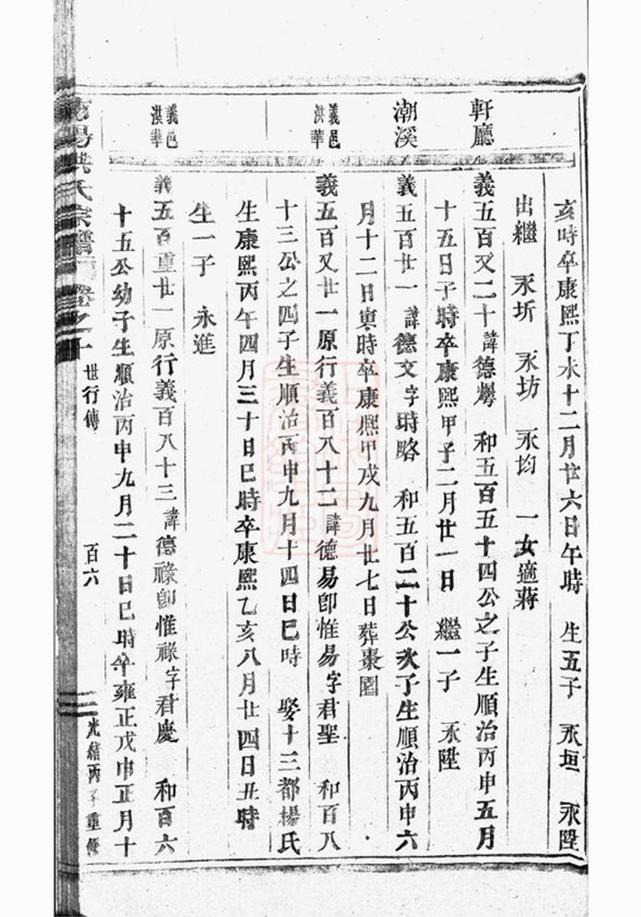 亥時卒康熙丁未十二月廿六日午時　生五子　永垣　永陞
出繼　永圻　永坊　永均　一女適蔣
軒廳
義五百又二十諱德　和五百五十四公之子生順治丙申五月
十五日子時卒康熙甲子二月廿一日　繼一子　永陞
潮溪
義五百廿一諱德文字時略　和五百二十公次子生順治丙申六
月十二日寅時卒康熙甲戌九月廿七日葬棗園
義邑
洪華
義五百又廿一原行義百八十二諱德易卽惟易字君聖　和百八
十三公之四子生順治丙申九月十四日巳時　娶十三都楊氏
生康熙丙午四月三十日巳時卒康熙乙亥八月廿四日丑時
生一子　永進
義邑
洪華
義五百重廿一原行義百八十三諱德祿卽惟祿字君慶　和百六
十五公幼子生順治丙申九月二十日巳時卒雍正戊申正月十
洪氏宗譜　卷之十　世行傳　百六　光緒丙子重修